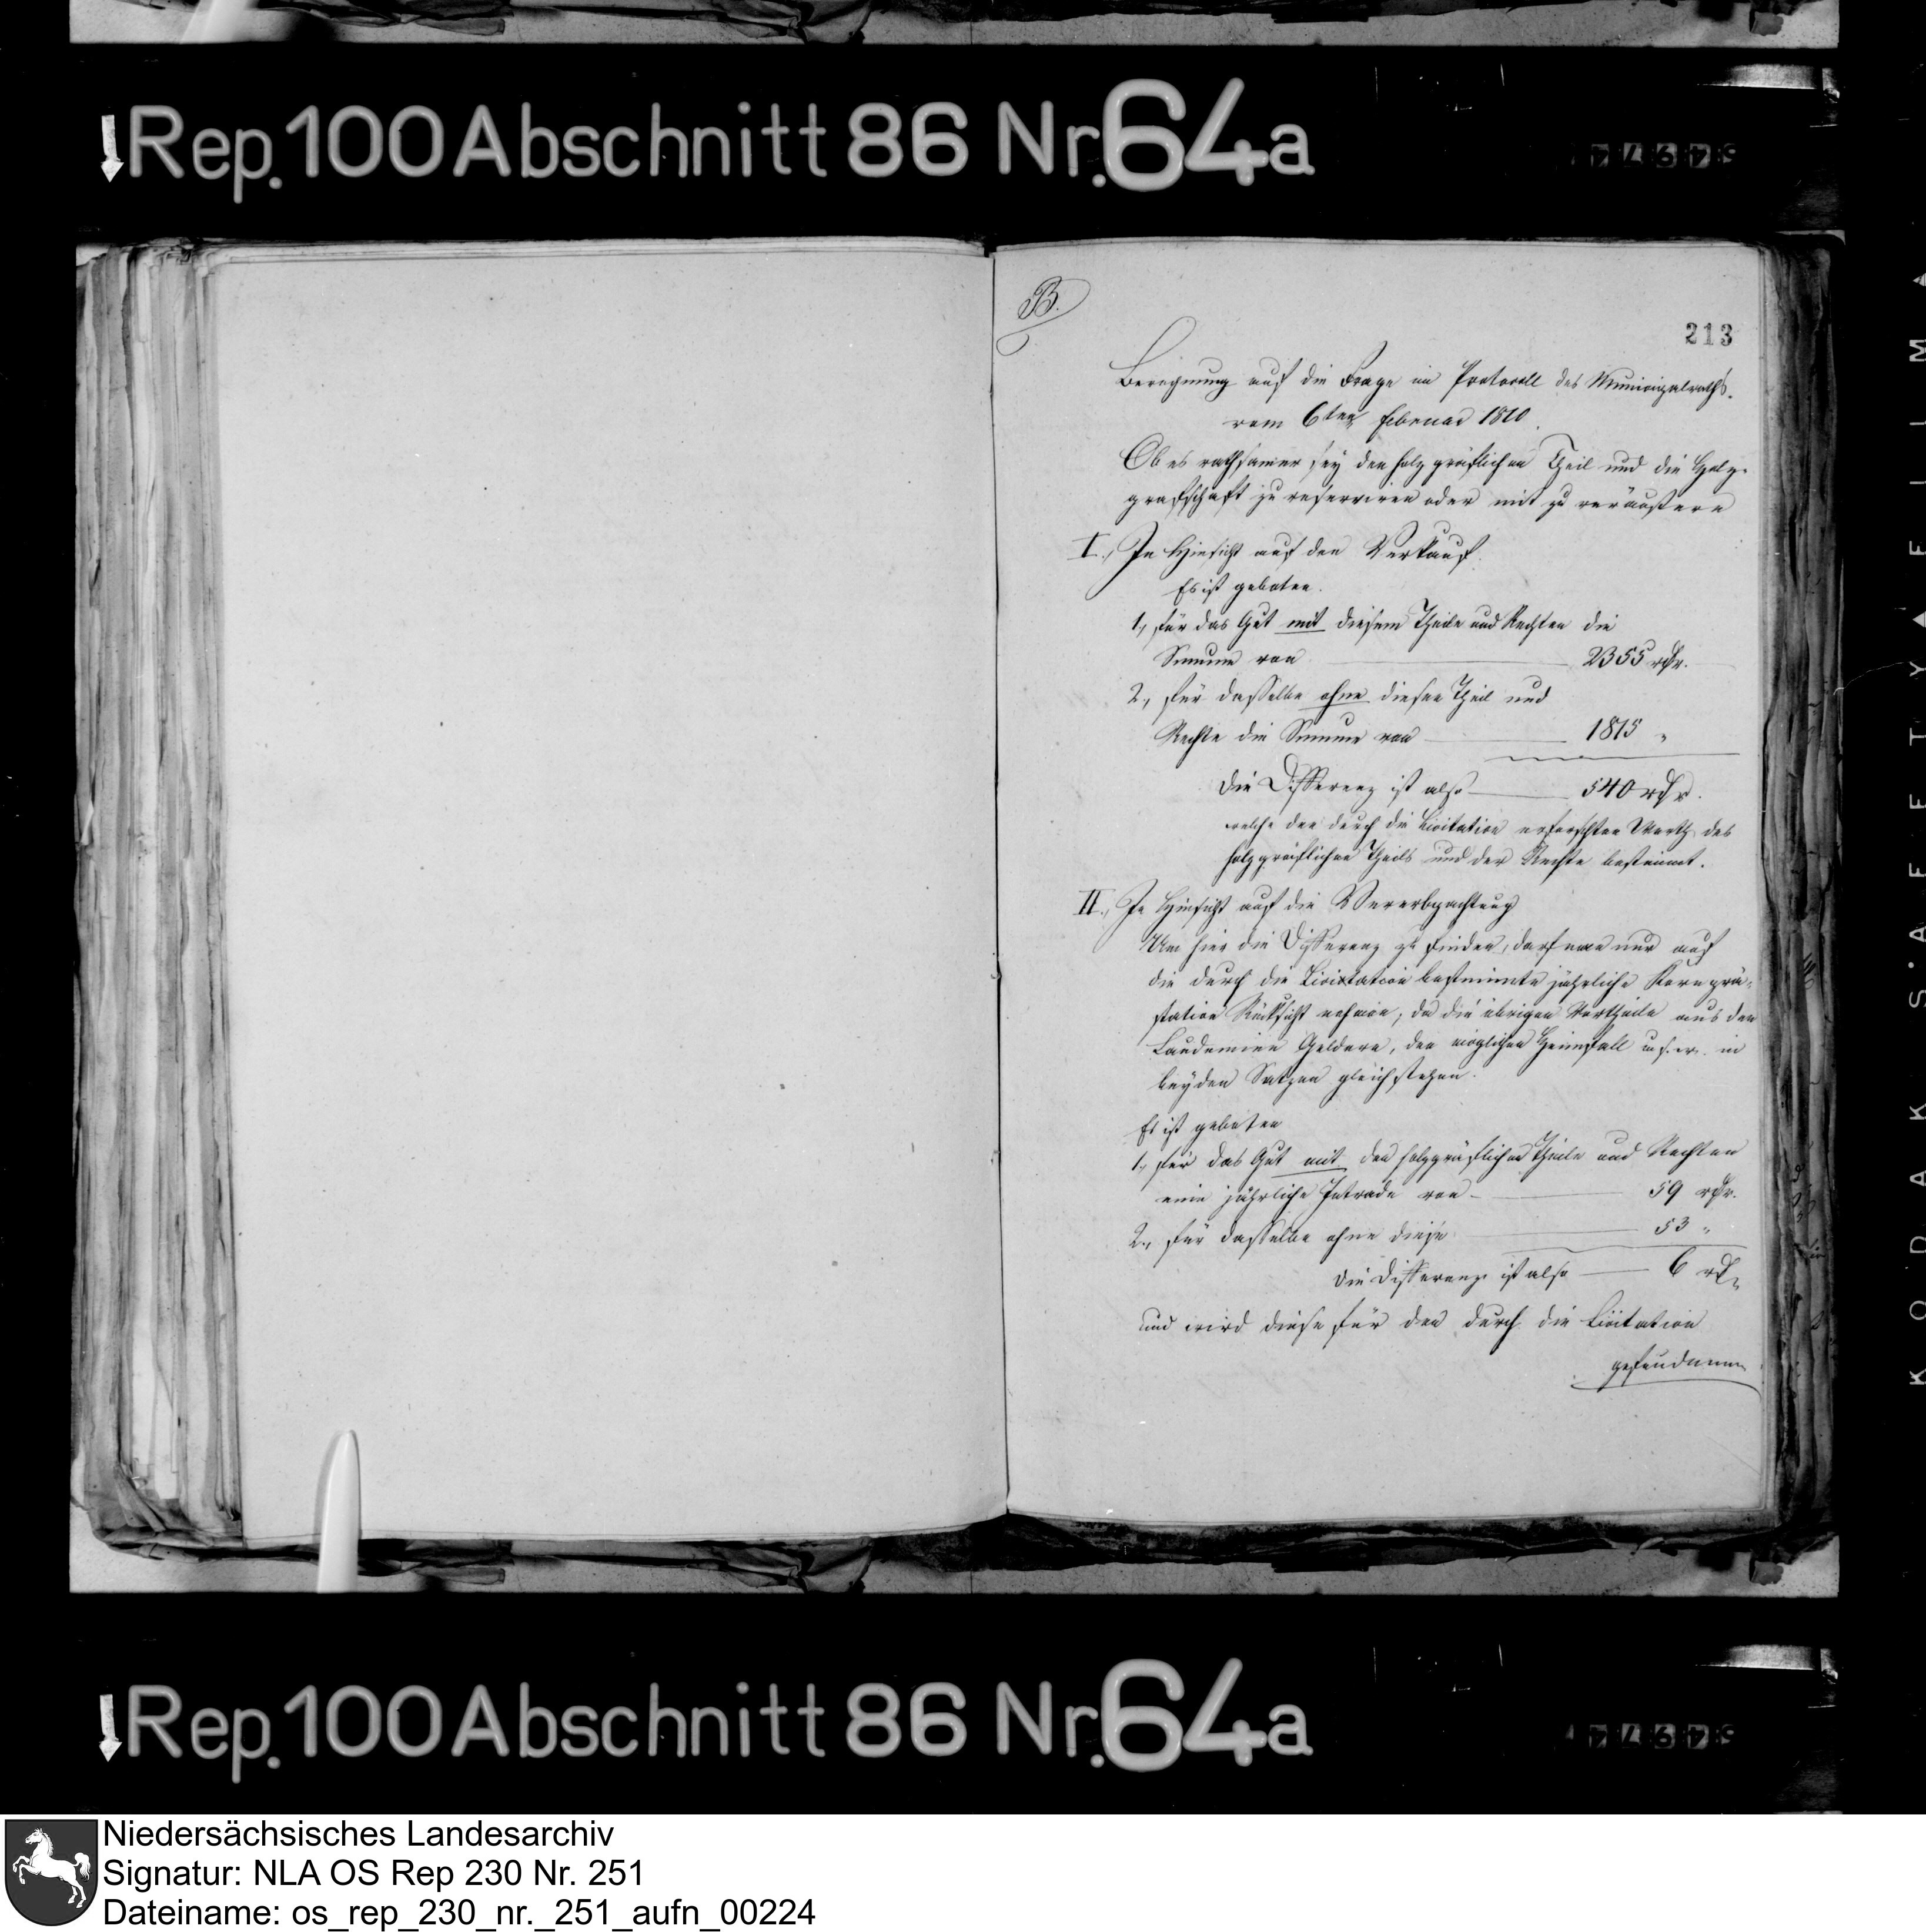 Rep. 100 Abschnitt 86 Nr. 64a
B.
213
Berechnung auf die Frage im Protocoll des Municipalraths
vom 6ten Februar 1810.
Ob es rathsamer sey den holzgräflichen Theil und die Holz-
grafschaft zu reserviren oder mit zu veräußern
I., In Hinsicht auf den Verkauf.
Es ist geboten.
1., für das Gut mit diesem Theile und Rechten die
Summe von 2355 rthr.
2., für dasselbe ohne diesen Theil und
Rechte die Summe von 1815 "
die Differenz ist also 540 rthr.
welche den durch die Licitation erforschten Werth des
holzgräflichen Theils und der Rechte bestimmt.
II., In Hinsicht auf die Vererbpachtung
Um hier die Differenz zu finden, darf man nur auf
die durch die Licitation bestimmte jährliche Kornprä-
station Rücksicht nehmen, da die übrigen Vortheile aus den
Laudemien Geldern, den möglichen Heimfall u.s.w. in
beyden Sätzen gleich stehen.
Es ist geboten
1., für das Gut mit den holzgräflichen Theile und Rechten
eine jährliche Intrade von 59 rthr.
2., für dasselbe ohne diese 53 "
die Differenz ist also 6 rth
und wird diese für den durch die Licitation
gefundenen
Rep. 100 Abschnitt 86 Nr. 64a
KODAK SAFETY FILM
Niedersächsisches Landesarchiv
Signatur: NLA OS Rep 230 Nr. 251
Dateiname: os_rep_230_nr._251_aufn_00224